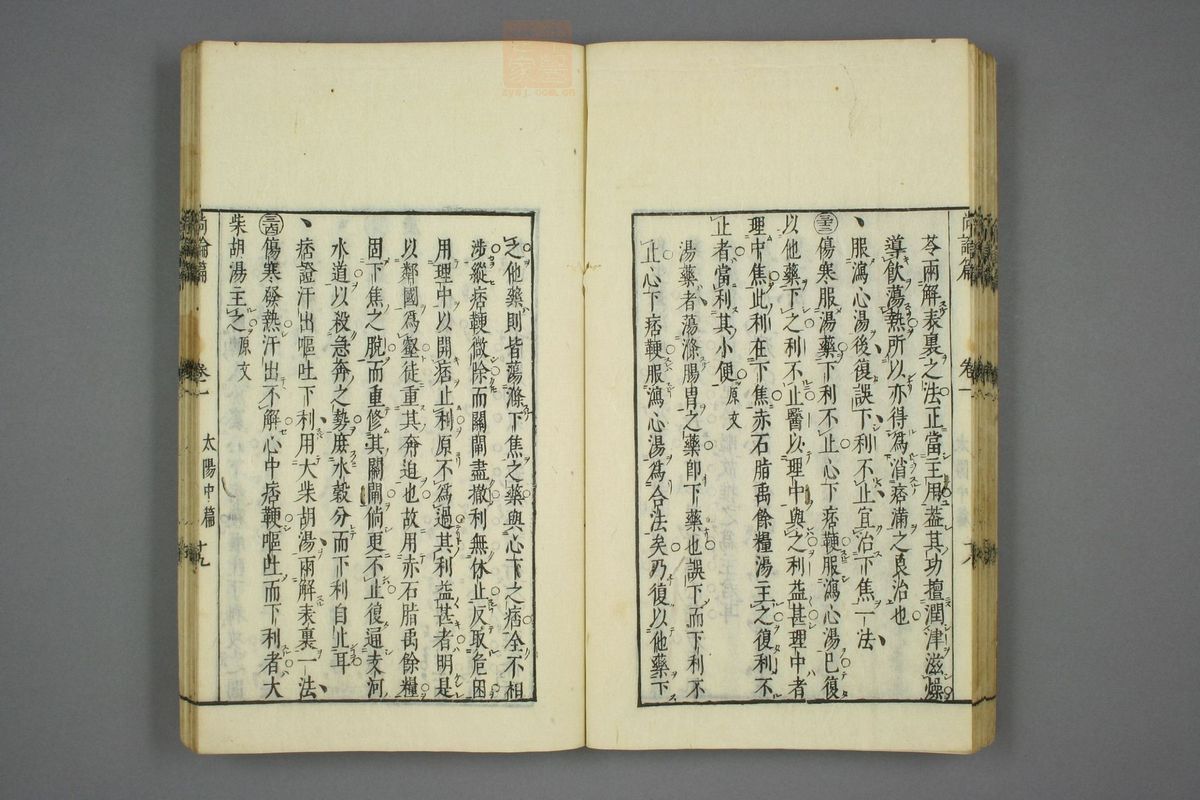 苓兩解表裏之法正當主用葢其功擅潤津滋燥
導飲蕩熱所以亦得爲消痞滿之良治也
服瀉心湯後復誤下利不止宜治下焦一法
傷寒服湯藥下利不止心下痞鞕服瀉心湯已復
以他藥下之利不止醫以理中與之利益甚理中者
理中焦此利在下焦赤石脂禹餘糧湯主之復利不
止者當利其小便原文
湯藥者蕩滌腸胃之藥卽下藥也誤下而下利不
止心下痞鞕服瀉心湯爲合法矣乃復以他藥下
尚論篇 卷一 太陽中篇 十八
之他藥則皆蕩滌下焦之藥與心下之痞全不相
涉縱痞鞕微除而關閘盡撤利無休止反取危困
用理中以開痞止利原不爲過其利益甚者明是
以鄰國爲壑徒重其奔迫也故用赤石脂禹餘糧
固下焦之脫而重修其關閘倘更不止復通支河
水道以殺急奔之勢庶水穀分而下利自止耳
痞證汗出嘔吐下利用大柴胡湯兩解表裏一法
傷寒發熱汗出不解心中痞鞕嘔吐而下利者大
柴胡湯主之原文
尚論篇 卷一 太陽中篇 十九
zysj.com.cn